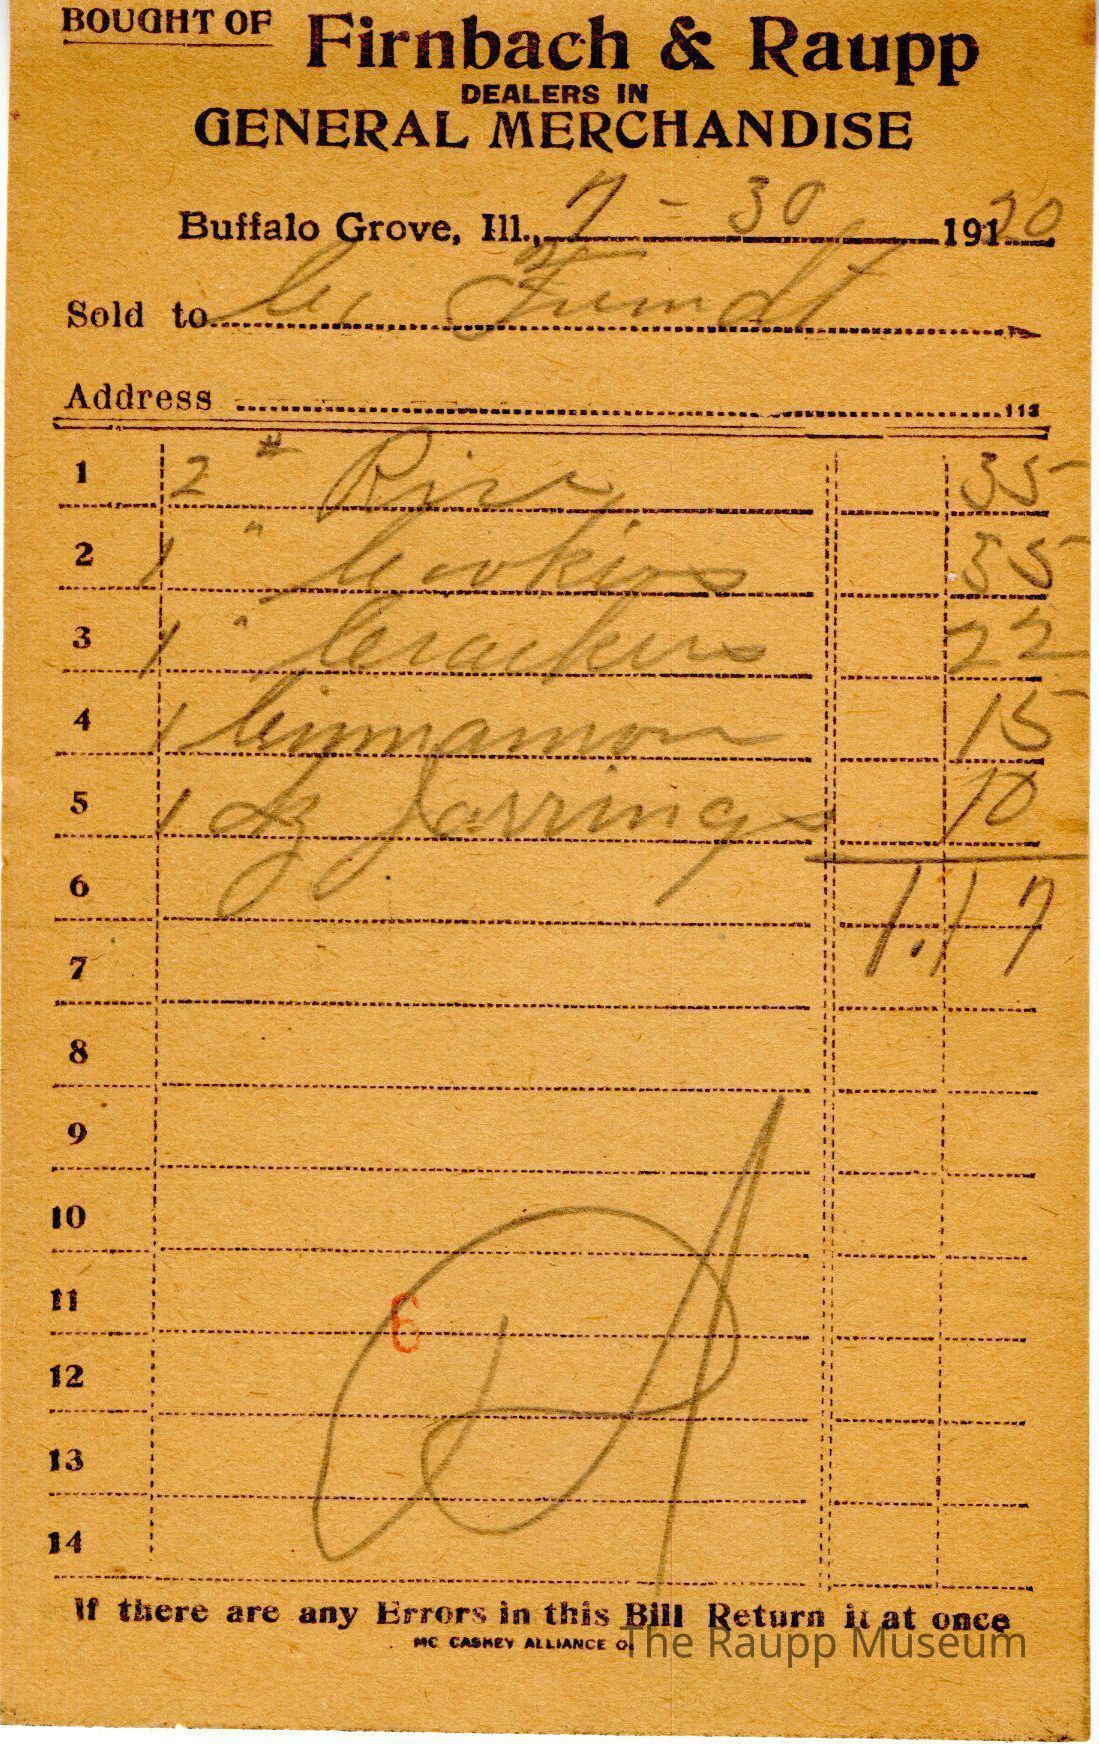 BOUGHT OF Firnbach & Raupp
DEALERS IN
GENERAL MERCHANDISE
Buffalo Grove, Ill., 7 - 30 191 20
Sold to C.
Address 113
1 2 # Rice 35
2 1 " Cookies 35
3 1 " Crackers 22
4 1 Cinnamon 15
5 1 dz Jarrings 10
6 1.17
7
8
9
10
11 6
12
13
14
If there are any Errors in this Bill Return it at once
MC CASKEY ALLIANCE O.
The Raupp Museum